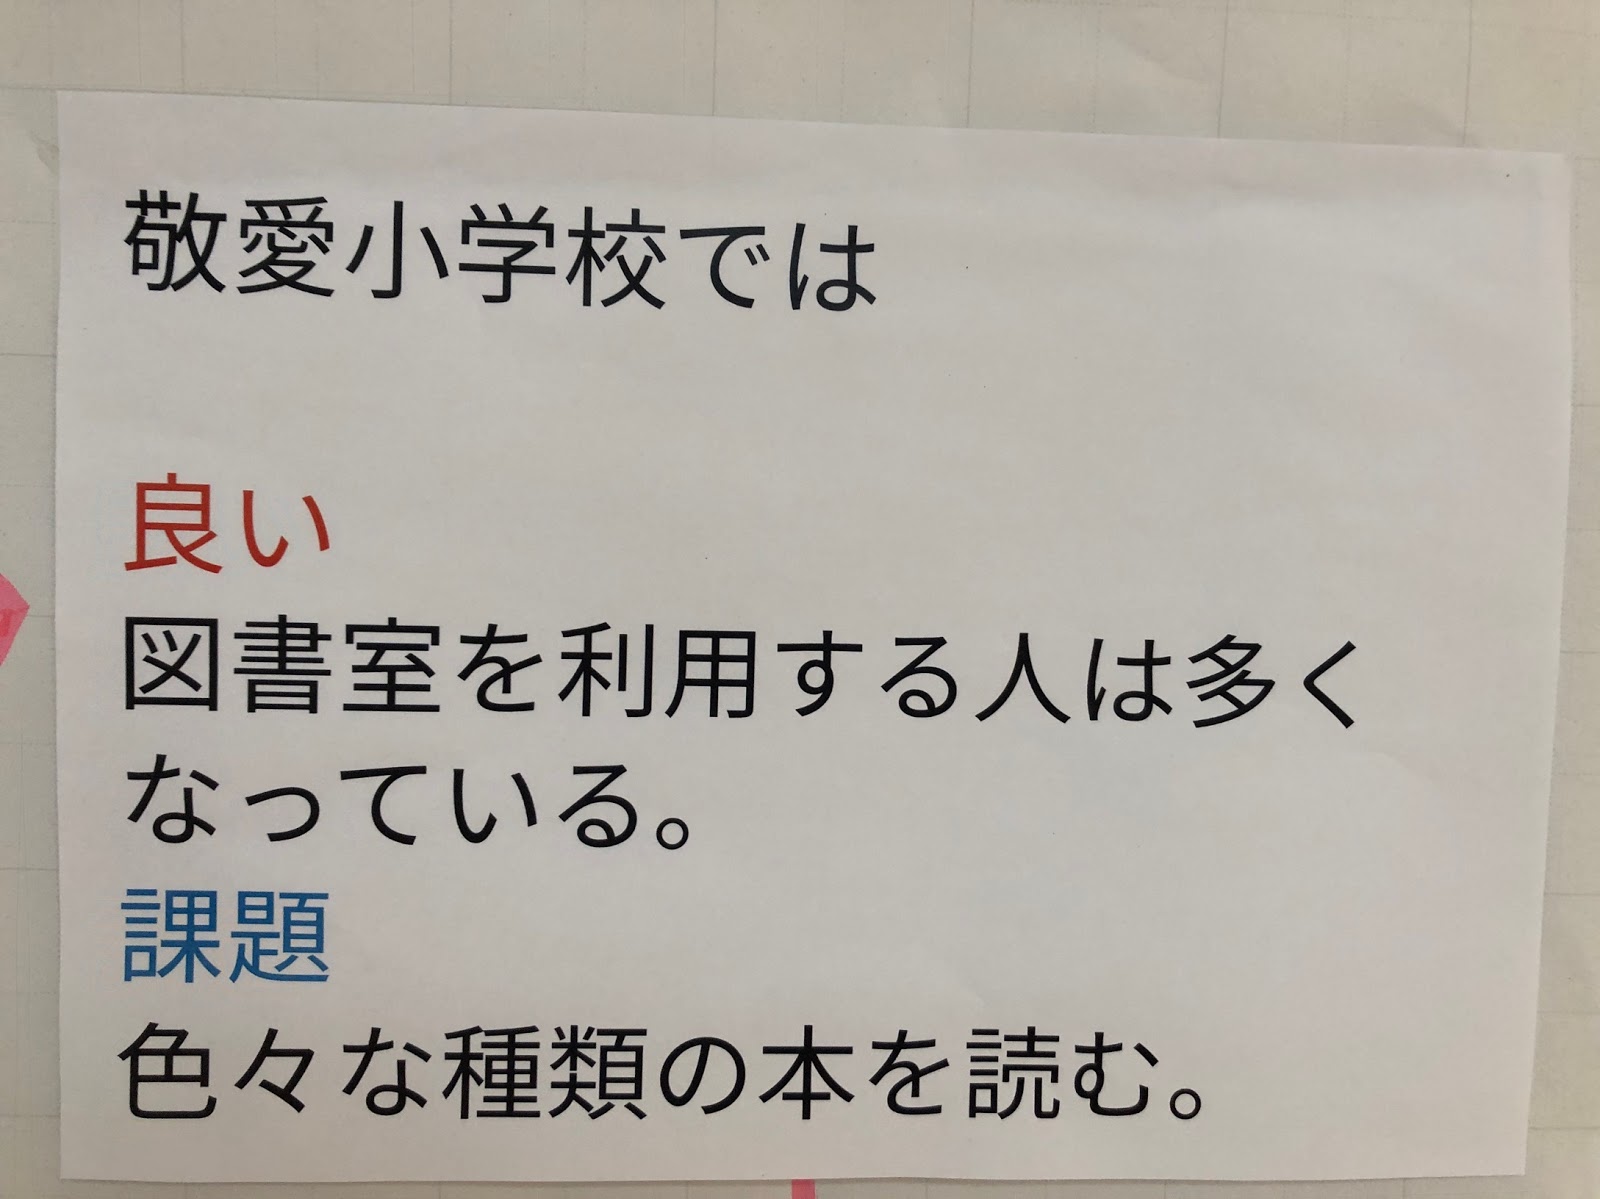 敬愛小学校では
良い
図書室を利用する人は多く
なっている。
課題
色々な種類の本を読む。